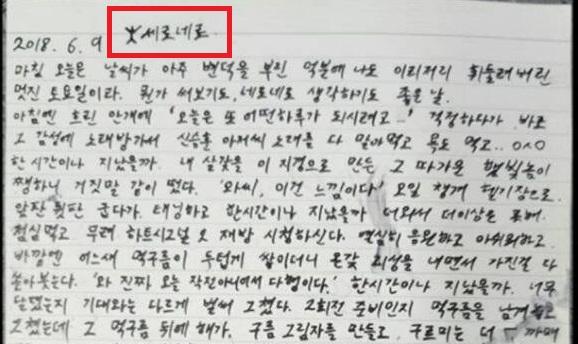 2018. 6. 9 ★세로네로.
마침 오늘은 날씨가 아주 변덕을 부린 덕분에 나도 이리저리 휘둘려버린
멋진 토요일이다. 뭔가 써보기도, 네로네로 생각하기도 좋은 날.
아침엔 흐린 안개에 '오늘은 또 어떤하루가 되시려고…' 걱정하다가 바로
그 감성에 노래방가서 신승훈 아저씨 노래를 다 말아먹고 목도 먹고.. ㅇㅅㅇ
한시간이나 지났을까. 내 살갗을 이 지경으로 만든 그 따가운 햇빛놈이
쨍하니 거짓말 같이 떴다. '와씨, 이건 느낌이다' 오일 챙겨 헬기장으로.
앞판 뒷판 굽다가. 태닝하고 한시간이나 지났을까 더워서 더이상은 못해.
점심먹고 무려 하트시그널 2 재방 시청하신다. 열심히 응원하고 아쉬워하고.
바깥엔 어느새 먹구름이 두텁게 쌓이더니 온갖 괴성을 내면서 가진걸 다
쏟아붓는다. '와 진짜 오늘 작전아니여서 다행이다.' 한시간이나 지났을까. 너무
달랬는지 기대와는 다르게 벌써 그쳤다. 2회전 준비인지 먹구름을 남겨놓고
그쳤는데 그 먹구름 뒤에 해가. 구름 그림자를 만들고, 구르미는 더